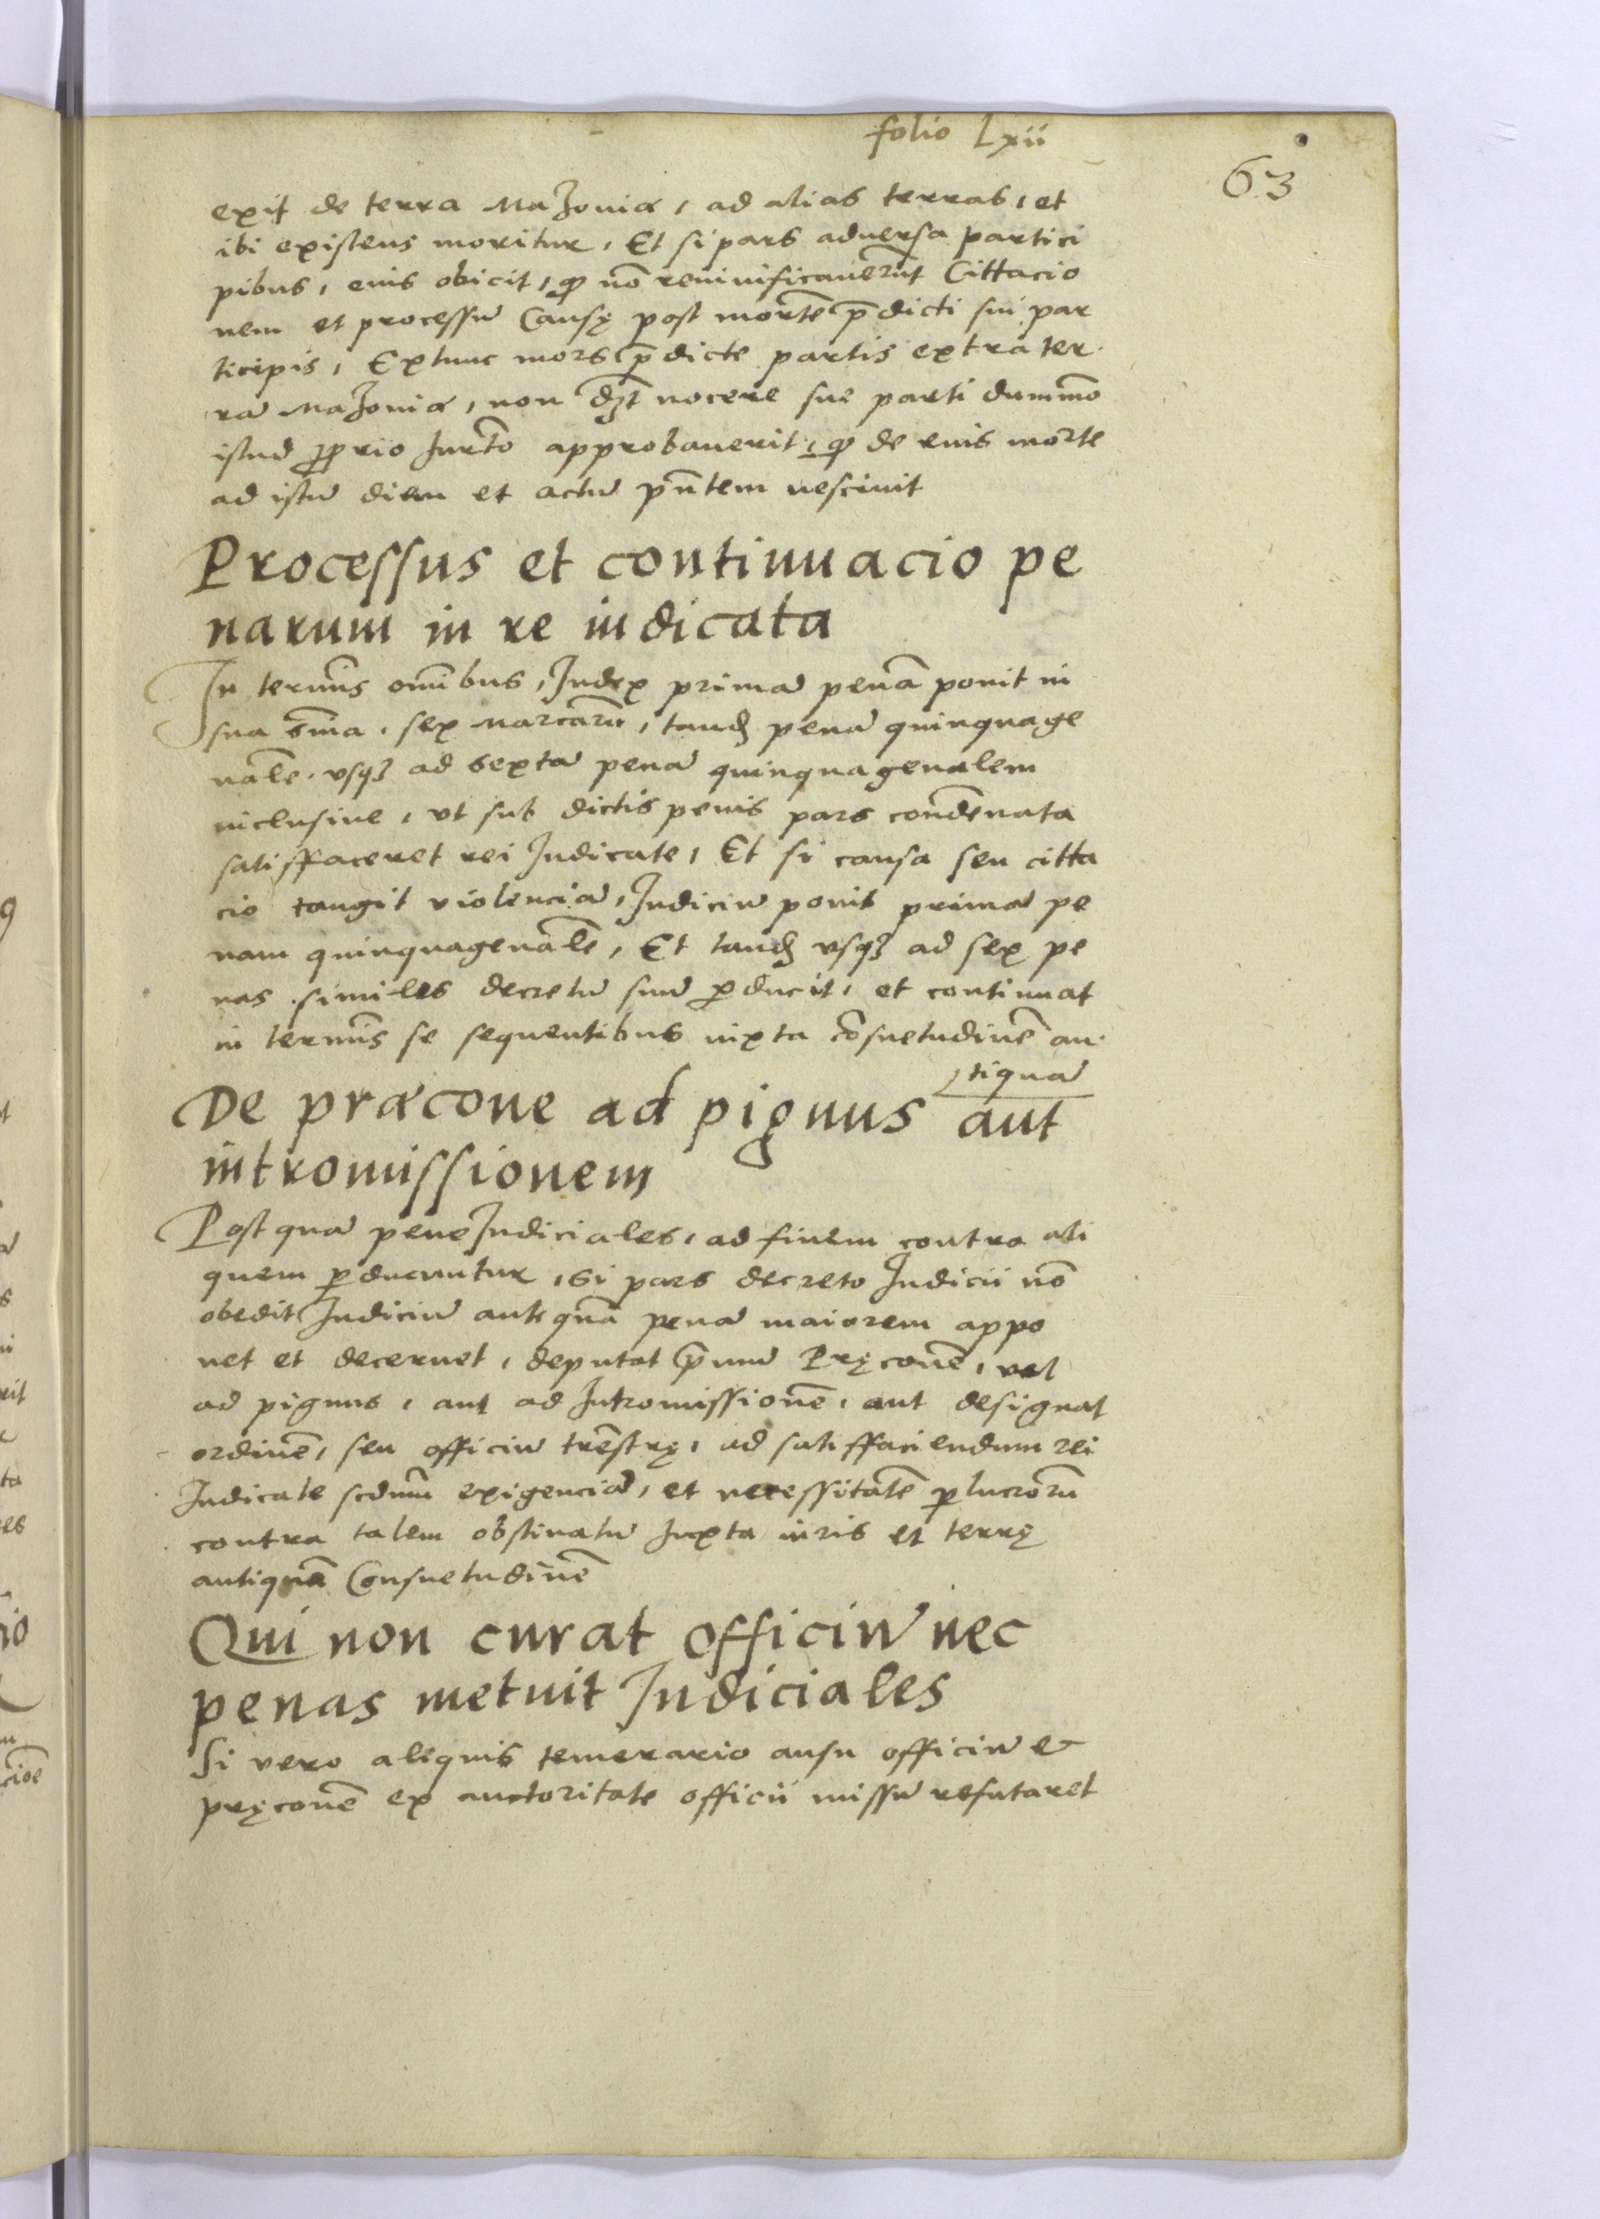 folio Lxii
63
exit de terra Mazoviæ, ad alias terras, et
ibi existens moritur, Et si pars adversa partici
pibus, eius obicit, ꝙ nō reuiuificauerūt Cittacio
nem et processũ Causę post mortē p̄dicti sui par
ticipis, Extunc mors p̄dicte partis extra ter
rã Mazoviæ, non dꝫt nocere sue parti dummō
istud ꝓprio Jurͣto approbauerit, ꝙ de eius morte
ad istũ diem et actũ pñtem nesciuit
Processus et continuacio pe
narum in re iudicata
In termīs om̄ibus, Judex primã penã ponit in
sua sm̄ia, sex Marcarū, tandē penã quinquage
nalē, vsqꝫ ad sextã penã quinquagenalem
inclusiue, vt sub dictis penis pars condēnata
satisffaceret rei Judicate, Et si causa seu citta
cio tangit violenciã, Judiciũ ponit primã pe
nam quinquagenalē, Et tandē vsqꝫ ad sex pe
nas similes decretũ suũ ꝑducit, et continuat
in termīs se sequentibus iuxta cōsuetudinē an
tiquã
De præcone ad pignus aut
intromissionem
Post quã pene Judiciales, ad finem contra ali
quem ꝑducuntur, si pars decreto Judicii nō
obedit Judiciũ ante quã penã maiorem appo
net et decernet, deputat p̄mũ Pręconē, vel
ad pignus, aut ad Intromissionē, aut designat
ordinē, seu officiũ trēstrę, ad satisffaciendum rei
Judicate scdm̄ exigenciã, et necessitatē ꝑlucrorū
contra talem obstinatũ Juxta iuris et terrę
antiquã Consuetudinē
Qui non curat officiũ nec
penas metuit Judiciales
Si vero aliquis temerario ausu officiũ &
pręconē ex auctoritate officii missũ refutaret